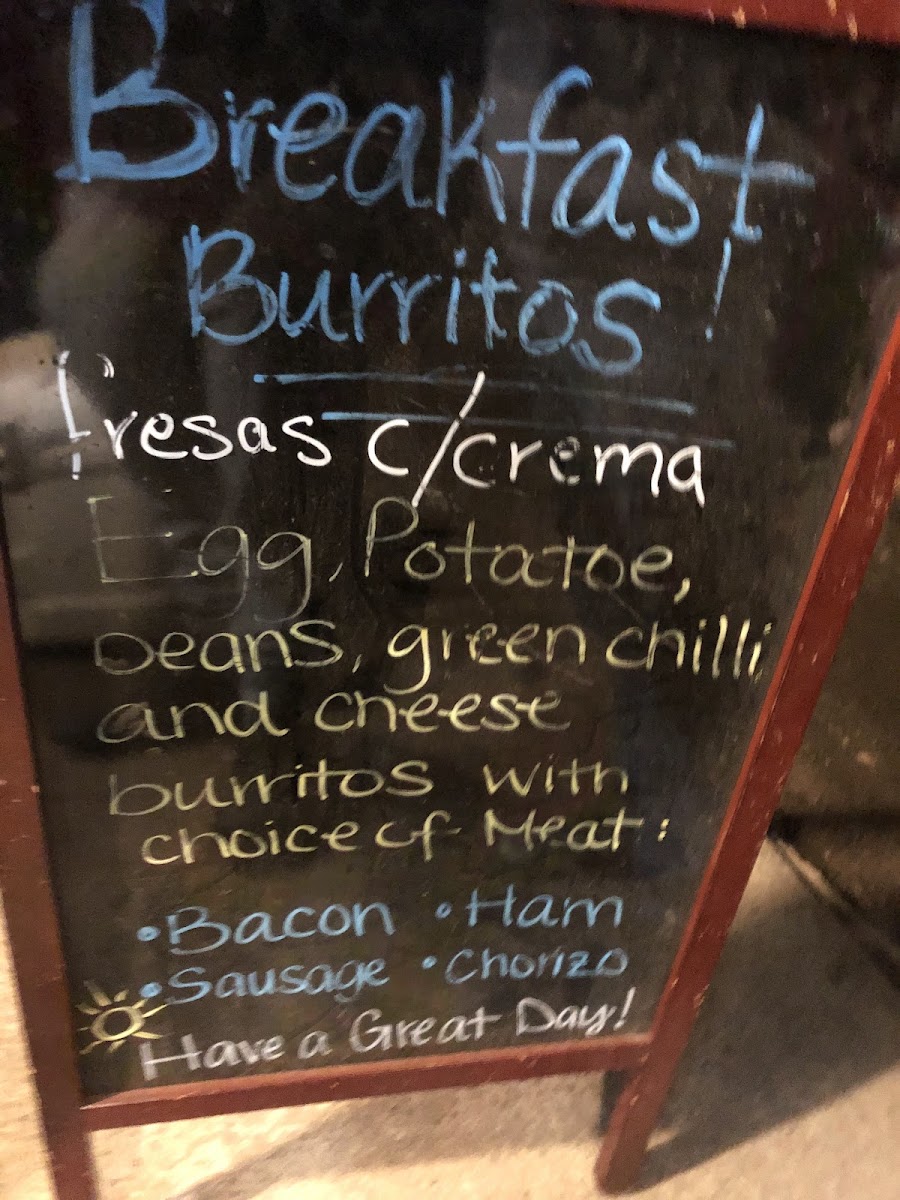 Breakfast
Burritos!
Fresas c/crema
Egg, Potatoe,
beans, green chilli
and cheese
burritos with
choice of Meat:
•Bacon •Ham
•Sausage •Chorizo
Have a Great Day!